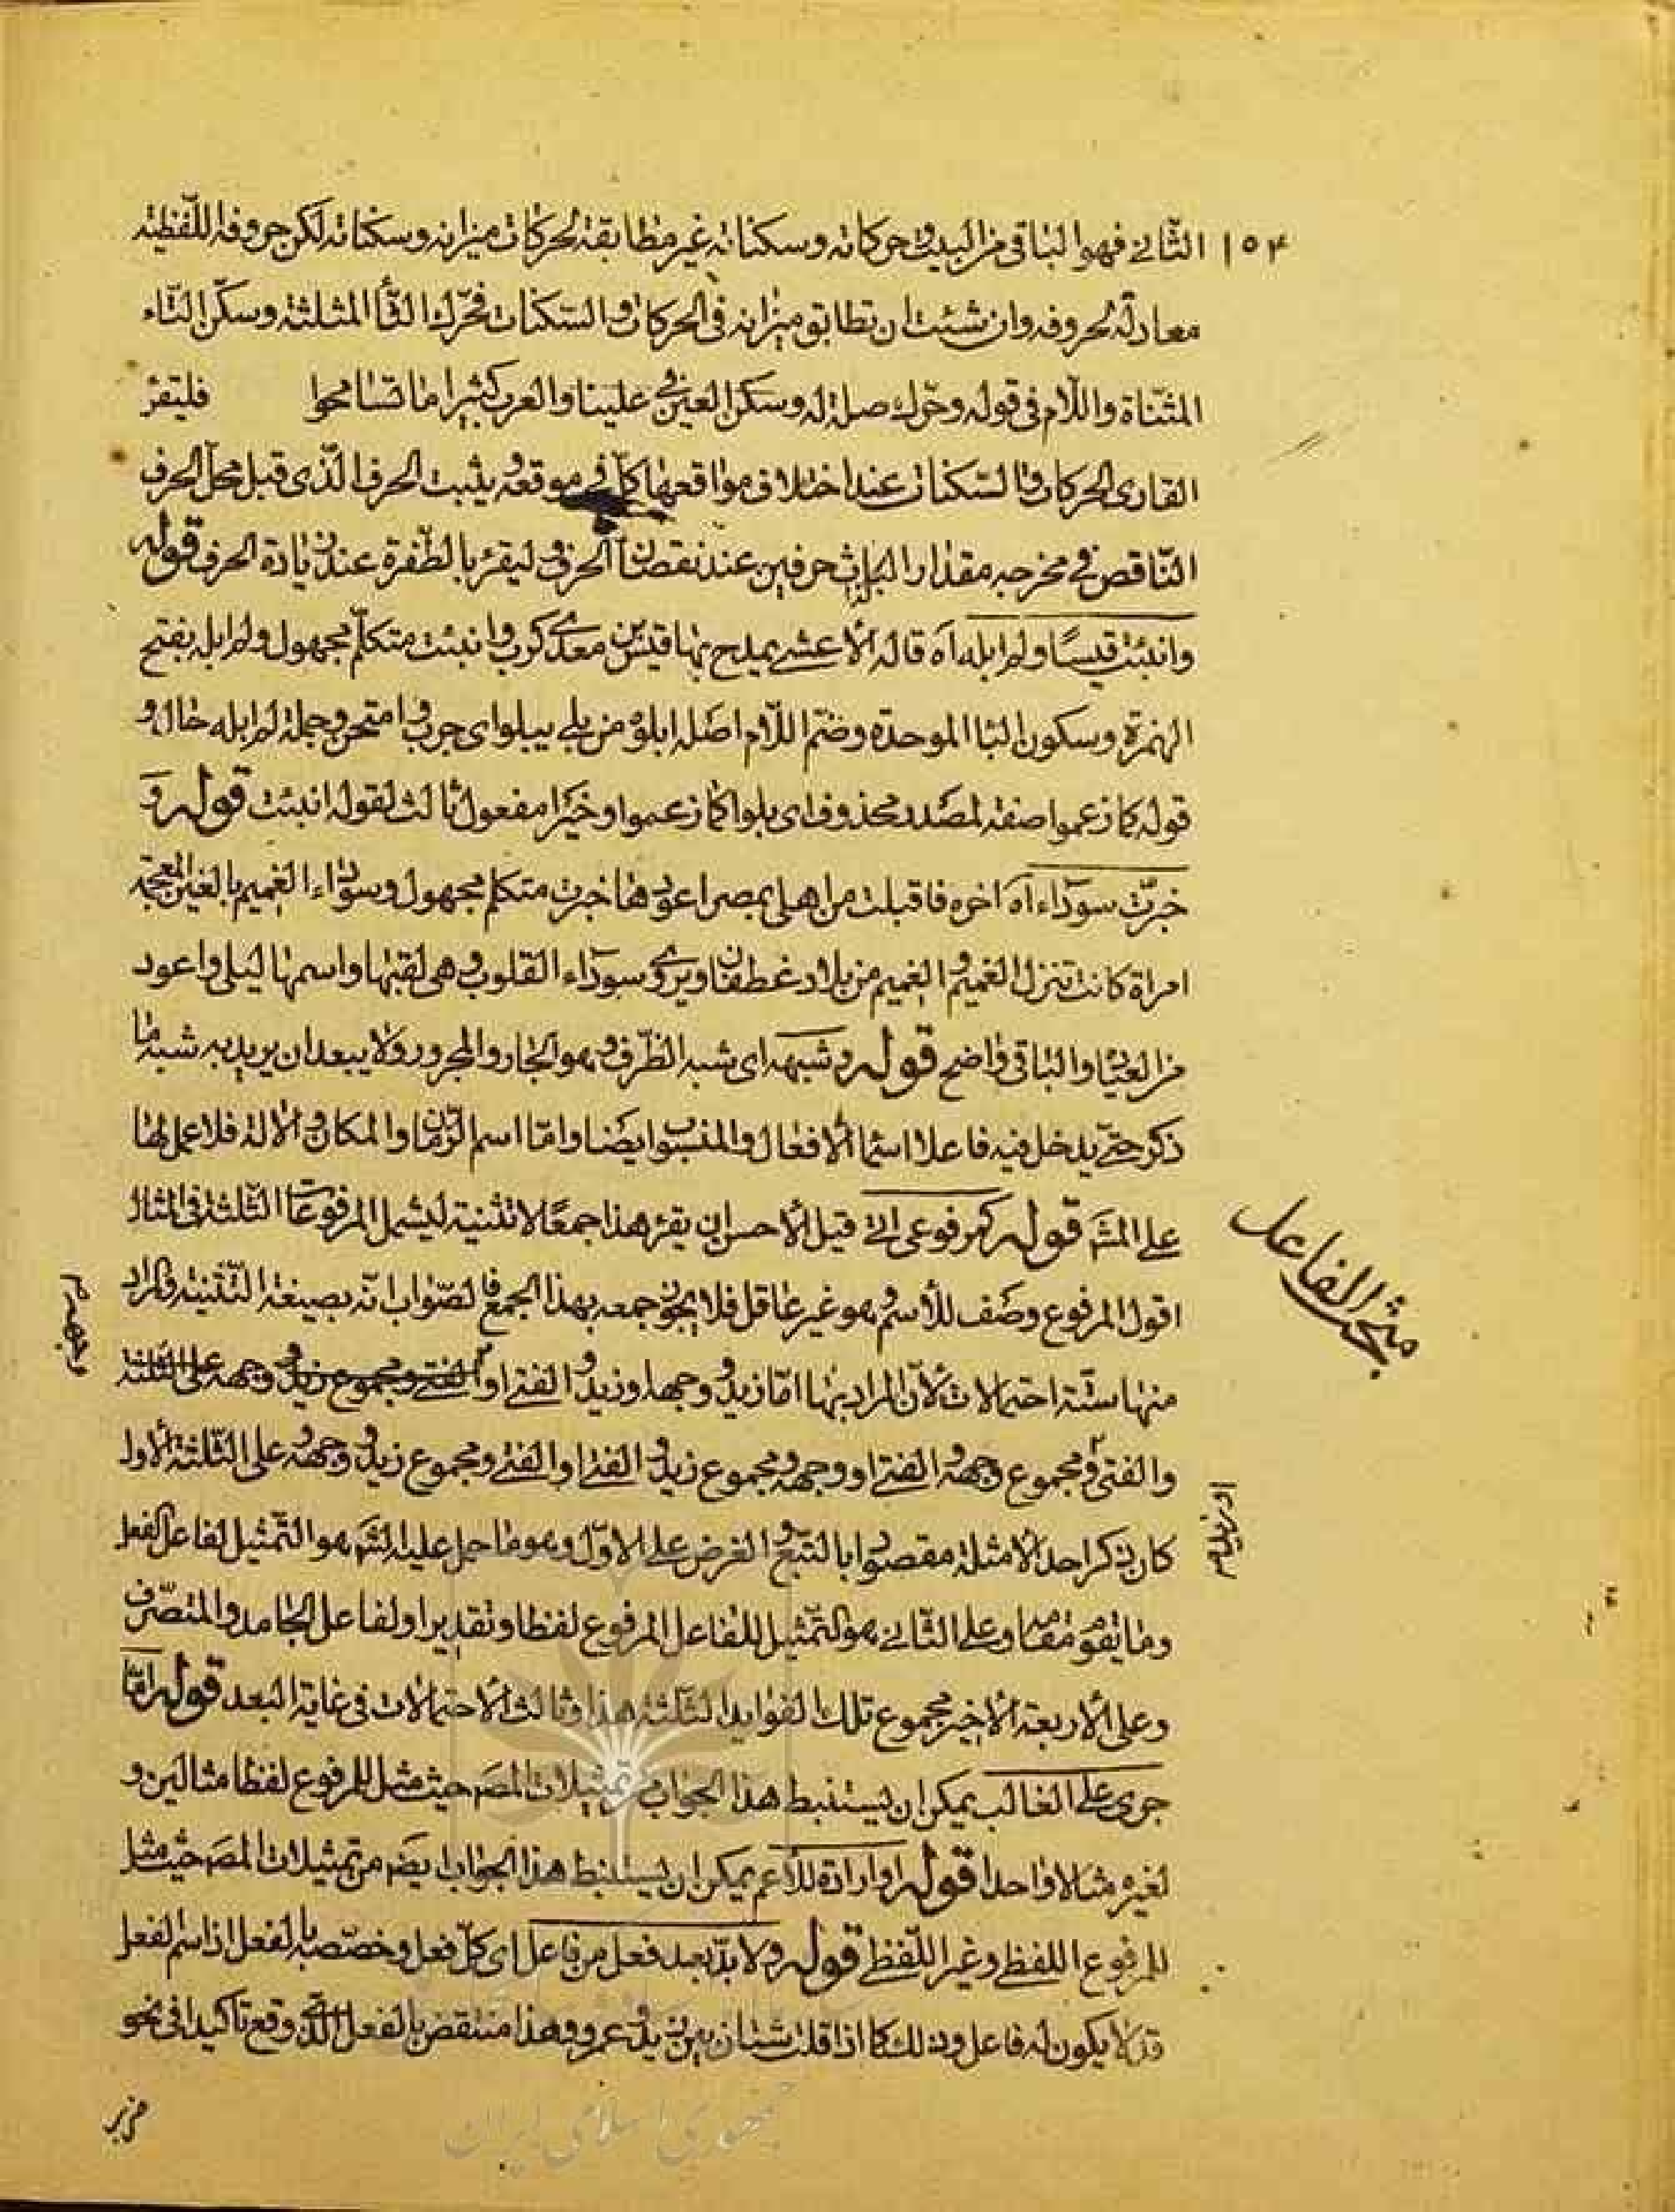 ١٥٤ الثّانے فهو الباقى من البيت و حركاته وسكناته غير مطابقة لحركات ميزانه وسكناته لكن حروفه اللّفظيّة
معادلة لحروفه وان شئت ان تطابق ميزانه فى الحركات و السّكنات فحرّك الثّا المثلثة وسكّن التّاء
المثنّاة واللّام فى قوله وحرّك صلة له وسكن العين فى علينا والعرب كثيرا ما تسامحوا فليقرئ
القارى الحركات والسّكنات عند اختلاف مواقعها كلّا فى موقعه و يثبت الحرف الّذى قبل محلّ الحرف
النّاقص فى مخرجه مقدارا لجائ حرفين عند نقصان الحرف و ليقرئ بالطّفرة عند زيادة الحرف قوله
وانبئت قيسًا ولم ابله آه قاله الأعشى يمدح بها قيس بن معدى كرب و انبئت متكلّم مجهول ولم ابله بفتح
الهمزة وسكون البا الموحدة وضمّ اللّام اصله ابلوه من بلى يبلو اى جرب و امتحن وجملة لم ابله حال و
قوله كما زعموا صفة لمصدر محذوف اى بلوا كما زعموا وخيرا مفعول ثالث لقوله انبئت قوله و
خبرّت سوداء آه اخره فاقبلت من اهلى بمصر اعودها خبرت متكلم مجهول وسوداء الغميم بالغين المعجمة
امراة كانت تنزل الغميم و الغميم من بلاد غطفان ويروى سوداء القلوب و هى لقبها واسمها ليلى واعود
من العيادة والباقى واضح قوله وشبهه اى شبه الظّرف و هو الجار والمجرور ولا يبعد ان يريد به شبه ما
ذكر حتّى يدخل فيه فاعلا اسما الأفعال والمنسوب ايضا وامّا اسم الزّمان والمكان و الآلة فلا عمل لها
على المشهَ قوله كمرفوعى اتى قيل الأحسن ان يقرء هذا جمعًا لا تثنية ليشمل المرفوعات الثّلثة فى المثال
اقول المرفوع وصف للأسم و هو غير عاقل فلا يجوز جمعه بهذا الجمع فالصّواب انّه بصيغة التّثنية والمراد
منها ستّة احتمالات لأنّ المراد بها امّا زيد و وجهه او زيد و الفتى او الفتى و مجموع زيد و وجهه على الثلثة
والفتى و مجموع وجهه و الفتى او وجهه و مجموع زيد و الفتى او الفتى و مجموع زيد و وجهه على الثّلثة الأول
كان ذكر احد الأمثلة مقصودا بالتبع و الغرض على الاوّل و هو ما حمل عليه الشَه هو التّمثيل لفاعل الفعل
وما يقوم مقامه وعلى الثّانى هو التّمثيل للفاعل المرفوع لفظا وتقديرا او لفاعل الجامد والمتصرّف
وعلى الأربعة الأخير مجموع تلك الفوايد الثّلثة هذا وثالث الأحتمالات فى غاية البعد قوله امّا
جرى على الغالب يمكن ان يستنبط هذا الجواب من تمثيلات المصَ حيث مثل للمرفوع لفظا مثالين و
لغيره مثالا واحدا قوله او ارادة للأعم يمكن ان يستنبط هذا الجواب ايضَ من تمثيلات المصَ حيث مثل
للمرفوع اللفظى وغير اللّفظى قوله ولا بدّ بعد فعل من فاعل اى كلّ فعل وخصّصه بالفعل اذ اسم الفعل
قد لا يكون له فاعل وذلك كما اذا قلت شتان بين زيد و عمرو وهذا منتقض بالفعل الّذى وقع تاكيدا فى نحو
مبحث الفاعل
ضرب